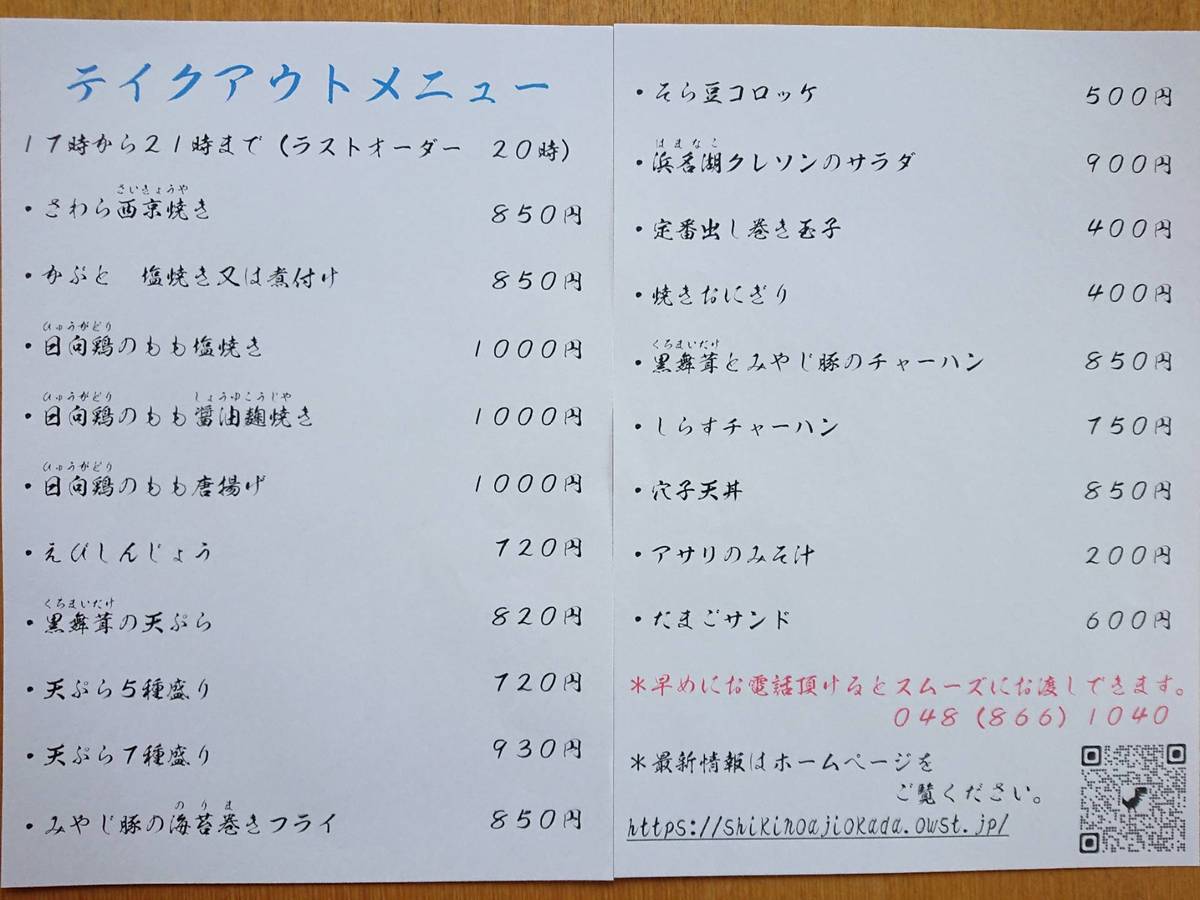 テイクアウトメニュー
17時から21時まで（ラストオーダー　20時）
さいきょうや
・さわら西京焼き 850円
・かぶと　塩焼き又は煮付け 850円
ひゅうがどり
・日向鶏のもも塩焼き 1000円
ひゅうがどり しょうゆこうじや
・日向鶏のもも醤油麹焼き 1000円
ひゅうがどり
・日向鶏のもも唐揚げ 1000円
・えびしんじょう 720円
くろまいだけ
・黒舞茸の天ぷら 820円
・天ぷら5種盛り 720円
・天ぷら7種盛り 930円
のりま
・みやじ豚の海苔巻きフライ 850円
・そら豆コロッケ 500円
はまなこ
・浜名湖クレソンのサラダ 900円
・定番出し巻き玉子 400円
・焼きおにぎり 400円
くろまいだけ
・黒舞茸とみやじ豚のチャーハン 850円
・しらすチャーハン 750円
・穴子天丼 850円
・アサリのみそ汁 200円
・たまごサンド 600円
＊早めにお電話頂けるとスムーズにお渡しできます。
048（866）1040
＊最新情報はホームページを
ご覧ください。
https://shikinoajiokada.owst.jp/